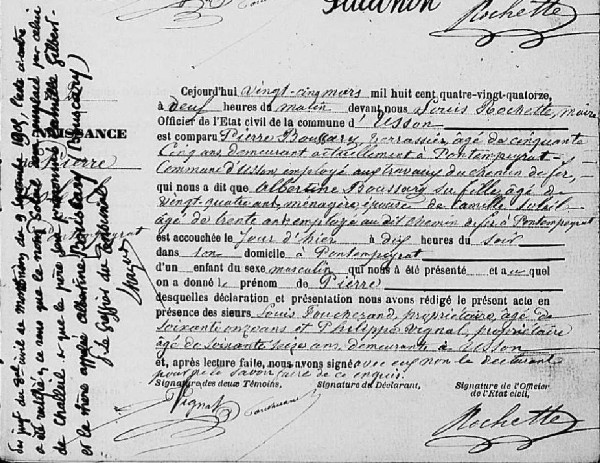 Rochette
Cejourd'hui vingt-cinq mars mil huit cent quatre-vingt-quatorze,
à deux heures du matin devant nous Louis Rochette, maire
Officier de l'Etat civil de la commune d'Usson
est comparu Pierre Boussary, terrassier, âgé de cinquante
cinq ans demeurant actuellement à Pontempeyrat
Commune d'Usson, employé aux travaux du chemin de fer,
qui nous a dit que Albertine Boussary sa fille, âgée de
vingt-quatre ans, ménagère, épouse de Camille Soleil
âgé de trente ans employé au dit chemin de fer à Pontempeyrat
est accouchée le jour d'hier à dix heures du soir
dans son domicile à Pontempeyrat
d'un enfant du sexe masculin qui nous a été présenté et auquel
on a donné le prénom de Pierre
desquelles déclaration et présentation nous avons rédigé le présent acte en
présence des sieurs Louis Foucherand, propriétaire, âgé de
soixante onze ans et Philippe Vignal, propriétaire
âgé de soixante seize ans demeurants à Usson
et, après lecture faite, nous avons signé avec eux non le déclarant
pour ne le savoir faire de ce enquis.
Signature des deux Témoins. Signature du Déclarant. Signature de l'Officier
de l'Etat civil,
Vignal
Rochette
SSANCE
Pierre
du jugt du tral civil de du 1908, l'acte ci-contre
a été rectifié, en ce sens que le nom Soleil sera remplacé par celui
de Challeil et que le père sera prénommé Camille Gilbert
et la mère appelée Albertine Boussary (Bouscary)
Le Greffier du